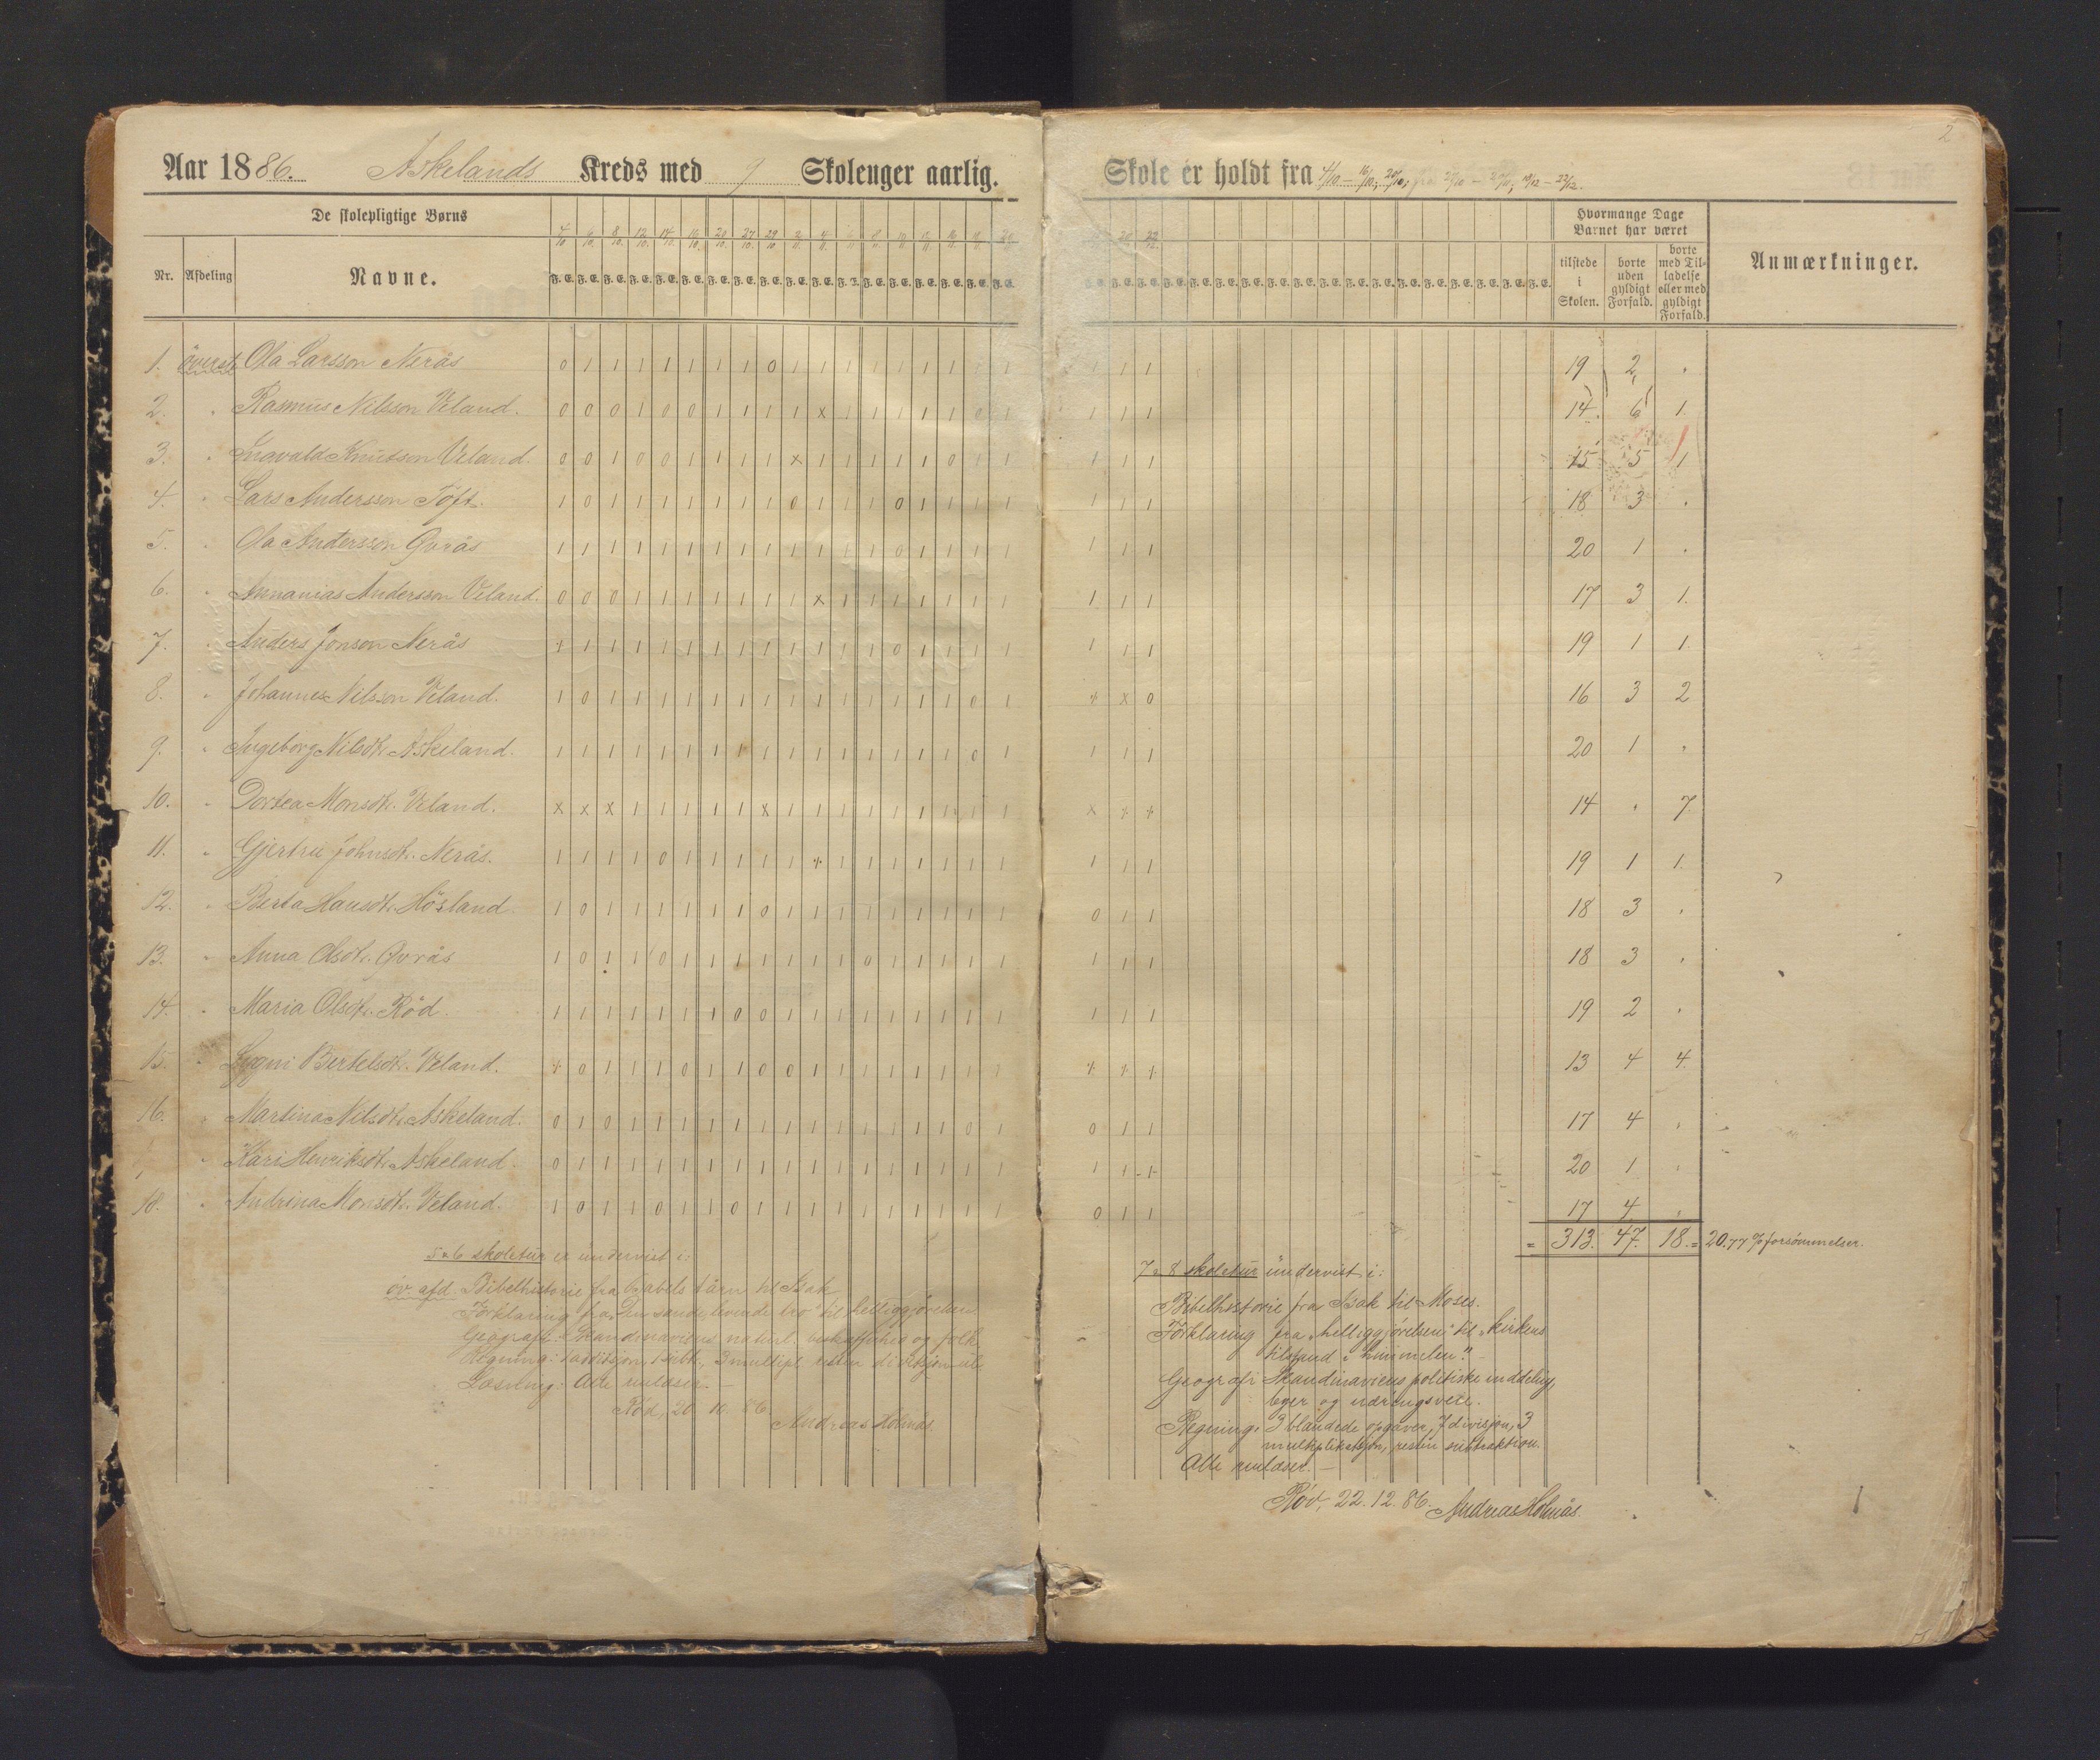 Aar 1886. Askelands Kreds med 9 Skolenger aarlig.
De skolepligtige Børns
Nr. Afdeling Navne.
4/10 6/10 8/10 12/10 14/10 16/10 20/10 27/10 29/10 2/11 4/11 6/11 8/11
F. E. F. E. F. E. F. E. F. E. F. E. F. E. F. E. F. E. F. E. F. E. F. E. F. E. F. E. F. E. F. E. F. E. F. E.
1. överste Ola Larsson Nerås 0 1 1 1 1 1 1 1 0 1 1 1 1 1 1 1 1 1
2. " Rasmus Nilsson Veland. 0 0 0 1 0 0 1 1 1 1 x 1 1 1 1 1 0 1
3. " Ingvald Knutson Veland. 0 0 1 0 0 1 1 1 1 x 1 1 1 1 1 0 1 1
4. " Lars Andersson Töft. 1 0 1 1 1 1 1 1 1 0 1 1 1 0 1 1 1 1
5. " Ola Andersson Qvrås 1 1 1 1 1 1 1 1 1 1 1 1 1 0 1 1 1 1
6. " Annanias Andersson Veland. 0 0 0 1 1 1 1 1 1 1 x 1 1 1 1 1 1 1
7. " Anders Jonson Nerås x 1 1 1 1 1 1 1 1 1 1 1 1 0 1 1 1 1
8. " Johannes Nilsson Veland. 1 0 1 1 1 1 1 1 1 1 1 1 1 1 1 1 0 1
9. " Ingeborg Nilsdt. Askeland. 1 1 1 1 1 1 1 1 1 1 1 1 1 1 1 1 0 1
10. " Dortea Monsdt. Veland. x x x 1 1 1 1 1 x 1 1 1 1 1 1 1 1 1
11. " Gjertru Johnsdt. Nerås. 1 1 1 1 0 1 1 1 1 1 x 1 1 1 1 1 1 1
12. " Berta Hansdt. Hösland. 1 0 1 1 1 1 1 1 0 1 1 1 1 1 1 1 1 1
13. " Anna Olsdt. Qvrås 1 0 1 1 0 1 1 1 1 1 1 1 0 1 1 1 1 1
14. " Maria Olsdt. Röd. 1 1 1 1 1 1 1 0 0 1 1 1 1 1 1 1 1 1
15. " Lygni Bertelsdt. Veland. x 0 1 1 1 0 1 1 0 0 1 1 1 1 1 1 1 1
16. " Martina Nilsdt. Askeland. 0 1 0 1 1 1 1 1 1 1 1 1 1 1 1 1 0 1
" Kari Henriksdt. Askeland. 0 1 1 1 1 1 1 1 1 1 1 1 1 1 1 1 1 1
18. " Andrina Monsdt. Veland. 1 0 1 1 0 1 1 0 1 1 1 1 1 1 1 1 1 1
5 a 6 skoletur er undervist i:
öv. afd. Bibelhistorie fra Babels tårn til Isak
Forklaring fra "Den sande, levende tro" til helliggjörelsen
Geografi: Skandinaviens naturl. beskaffenhed og folk
Regning: 1 addisjon, 1 subt., 3 multipl. resten divisjon
Læsning: Alle
Röd, 20.11.86
Andreas Holmås
2
Skole er holdt fra 4/10 – 16/10; 20/10; fra 27/10 – 20/11; 19/12 – 22/12.
20 22/12
F. E. F. E. F. E. F. E. F. E. F. E. F. E. F. E. F. E. F. E. F. E. F. E. F. E. F. E. F. E. F. E. F. E.
Hvormange Dage Barnet har været
tilstede i Skolen.
borte uden gyldigt Forfald.
borte med Tilladelse eller med gyldigt Forfald.
Anmærkninger.
1 1 1 19 2 "
1 1 1 14. 6 1.
1 1 1 15 5 1
1 1 1 18 3 "
1 1 1 20 1 "
1 1 1 17 3 1.
1 1 1 19 1 1.
x x 0 16 3 2
1 1 1 20 1 "
x x x 14 " 7.
1 1 1 19 1 1.
0 1 1 18 3 "
1 1 1 18 3 "
1 1 1 19 2 "
x x x 13 4 4.
0 1 1 17 4 "
1 1 1 20 1 "
0 1 1 17 4 "
= 313. 47. 18. = 20.77 % forsömmelser.
7 a 8 skoletur undervist i:
Bibelhistorie fra Isak til Moses.
Forklaring fra "helliggjörelsen" til "kirkens
tilstand i himmelen". –
Geografi Skandinaviens politiske inddeling,
og næringsveie.
Regning: 3 blandede opgaver, 7 divisjon, 3
multiplikasjon, resten subtraktion.
Alle
Röd, 22.12.86. Andreas Holmås.